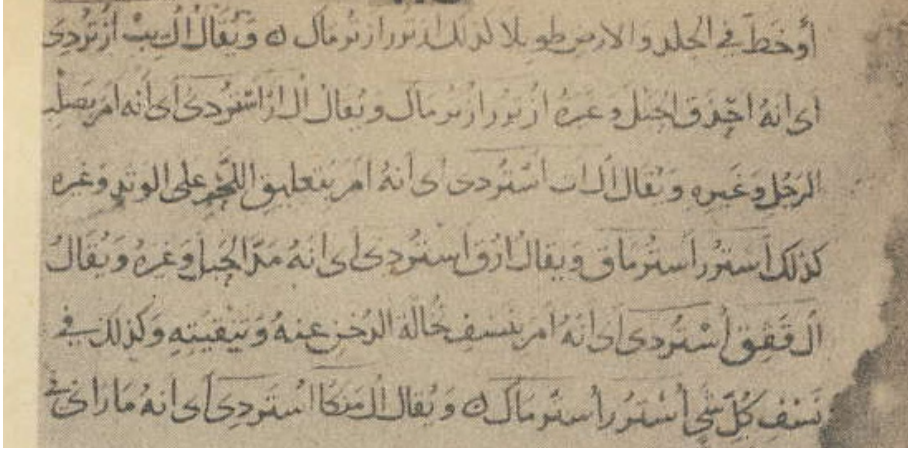 أو خط في الجلد والارض طويلا لذلك ازتور ازتورماك ويقال ال ييب ازتردى
اى انه اخذق الحبل وغيره ازتور ازتورماك ويقال ال ار استردى اى انه امر بصلب
الرجل وغيره ويقال ال ات استردى اى انه امر بتعليق اللحم على الوتد وغيره
كذلك استرر استرماق ويقال ال اق استردى اى انه مد الحبل وغيره ويقال
ال قفق استردى اى انه امر بنسف نخالة الدخن عنه وتنقيته وكذلك في
نسف كل شي استرر استرماك ويقال ال منكا استردى اى انه مارانى في